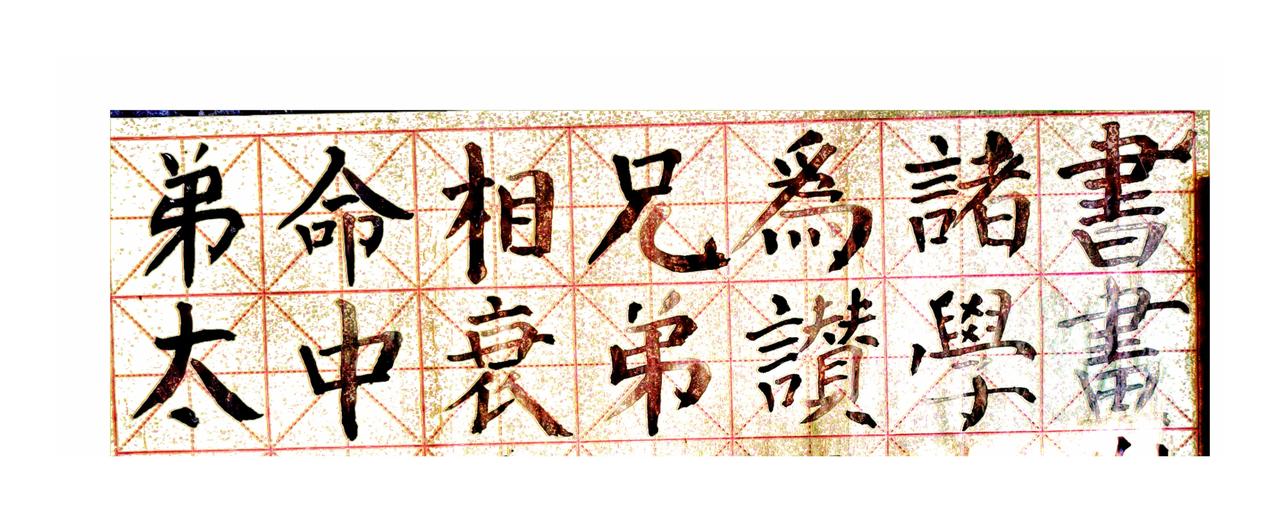 書畫
諸學
爲讚
兄弟
相衰
命中
弟太